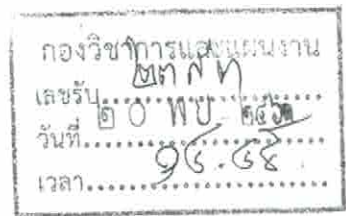 กองวิชาการและแผนงาน
เลขรับ
วันที่ ๒๐ พย.
เวลา ๑๔.๔๕